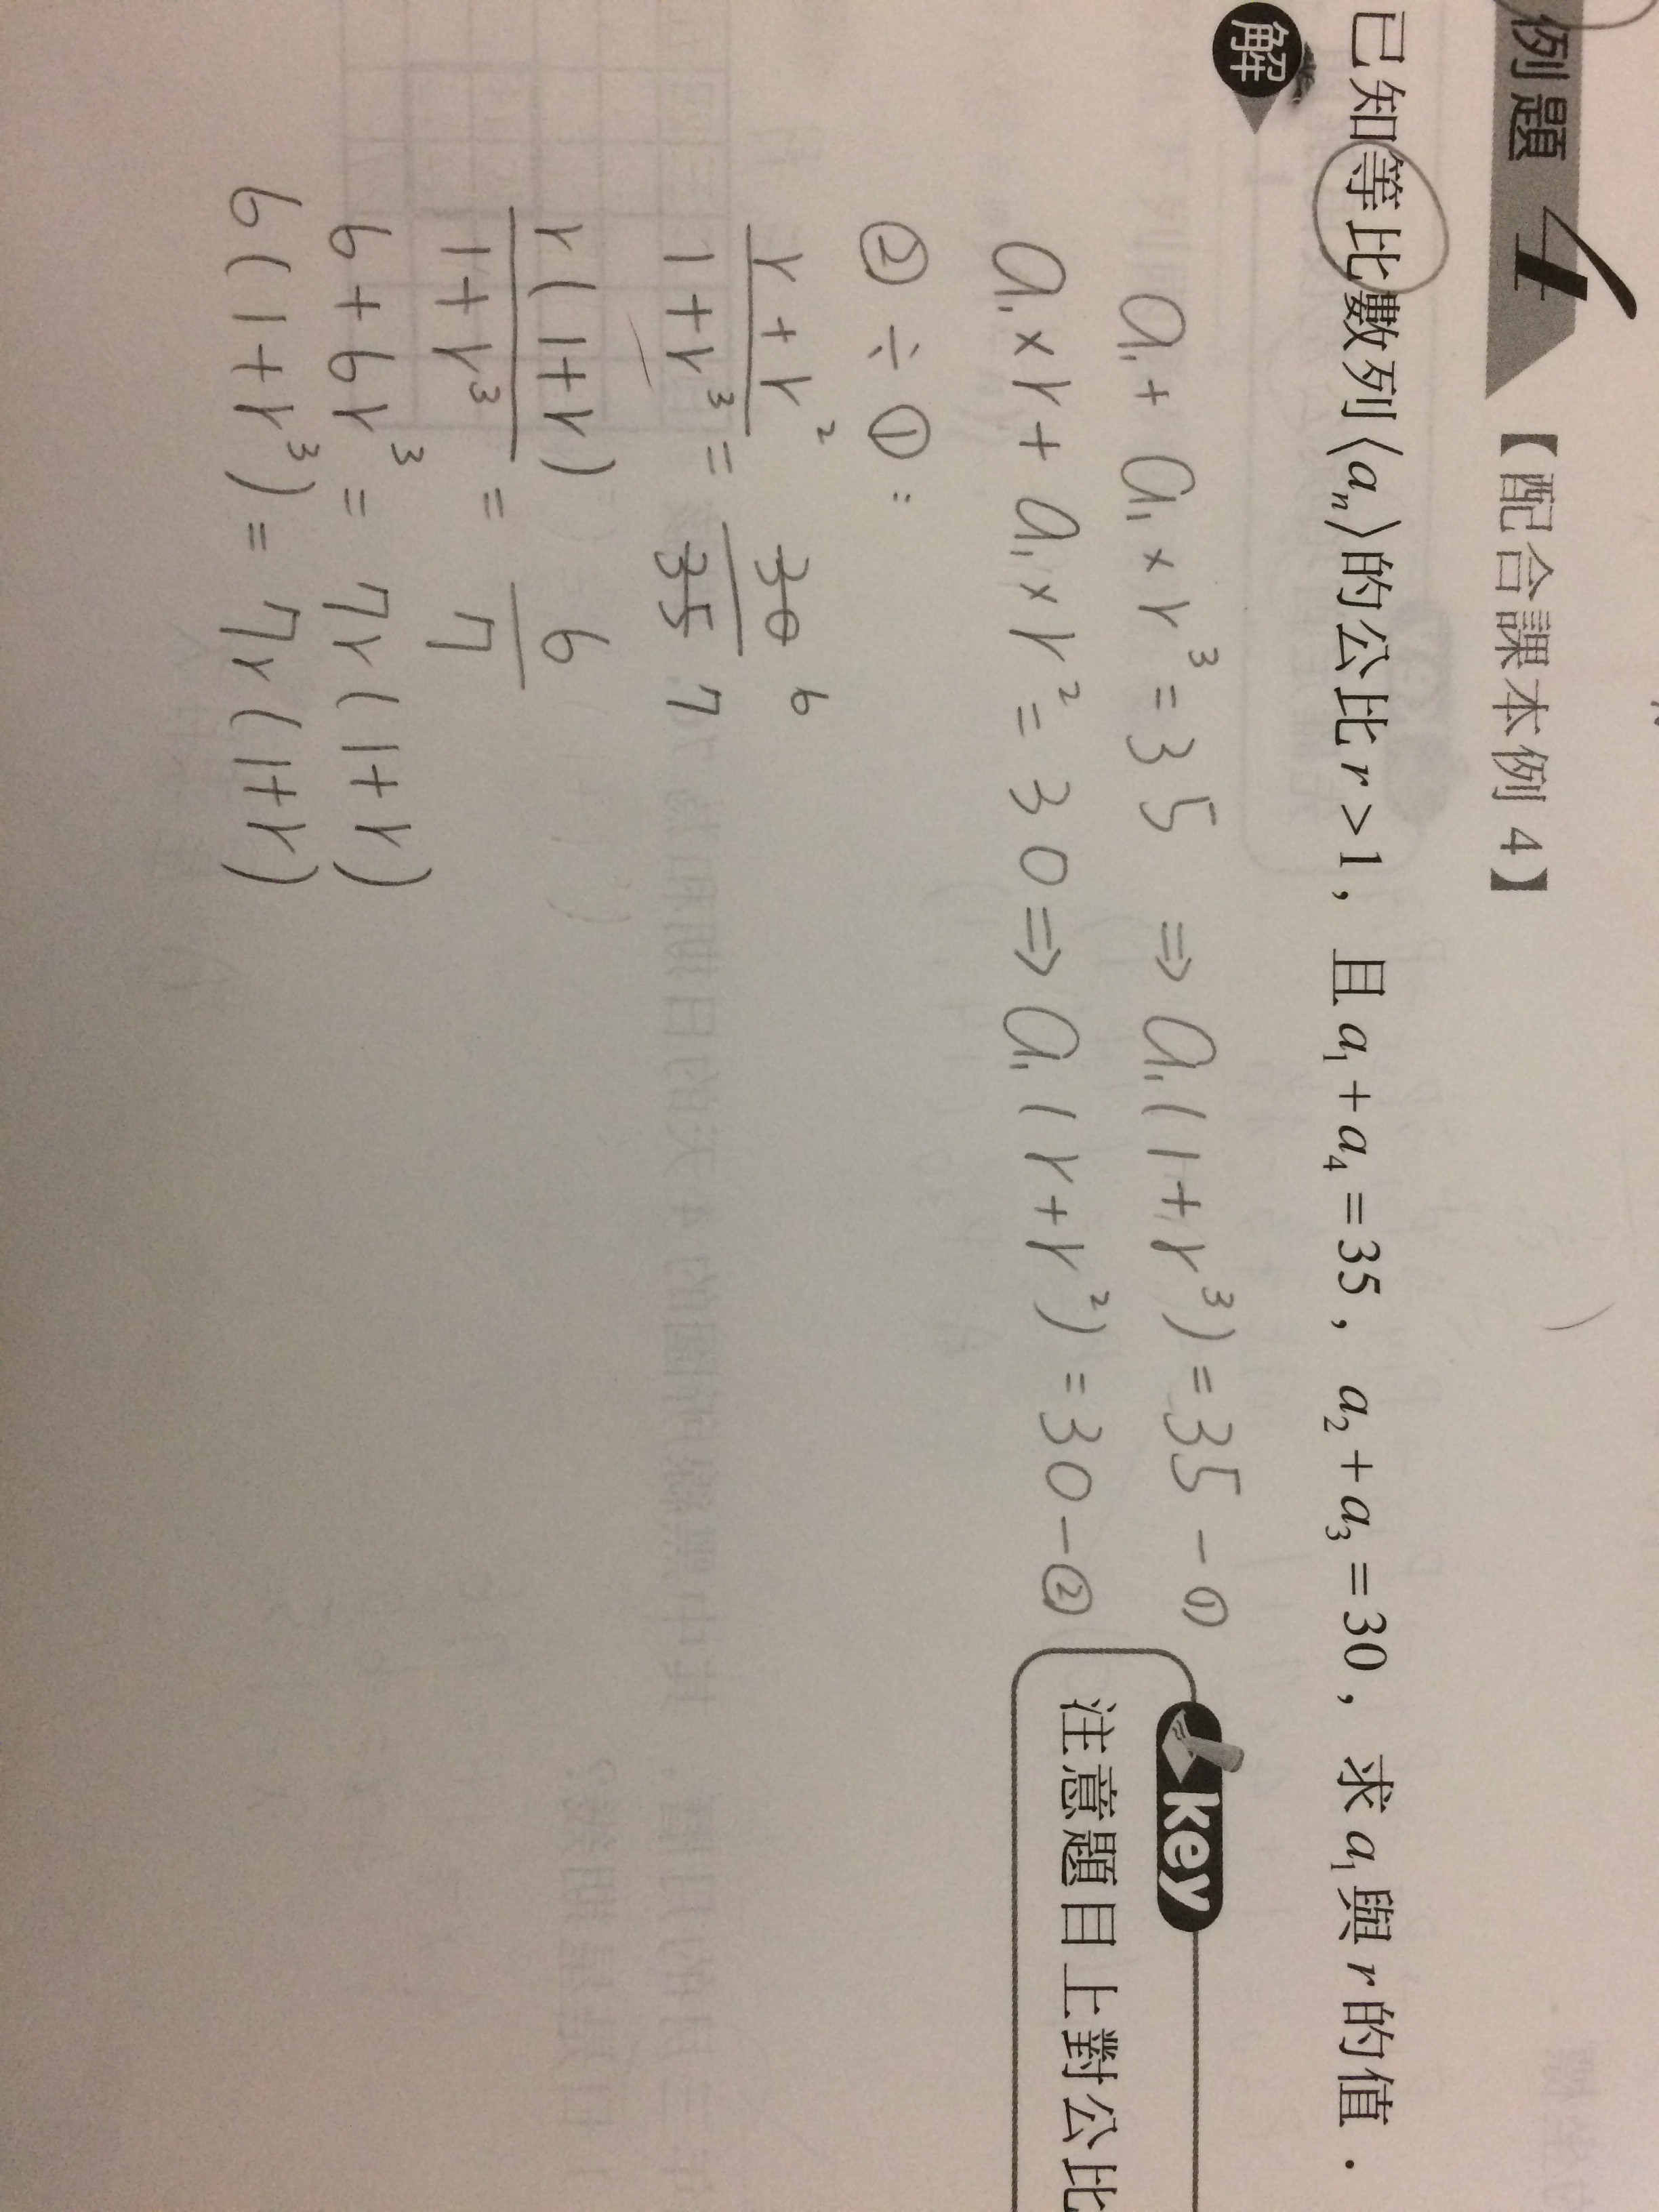 例題 4 【配合課本例 4】
已知等比數列⟨aₙ⟩的公比 r>1，且 a₁+a₄=35，a₂+a₃=30，求 a₁與 r 的值．
解
a₁ + a₁ × r³ = 35 ⇒ a₁(1+r³) = 35 - ①
a₁×r + a₁×r² = 30 ⇒ a₁(r+r²) = 30 - ②
key
注意題目上對公比
② ÷ ① :
r+r² / 1+r³ = 30 / 35 6 / 7
r(1+r) / 1+r³ = 6 / 7
6+6r³ = 7r(1+r)
6(1+r³) = 7r(1+r)